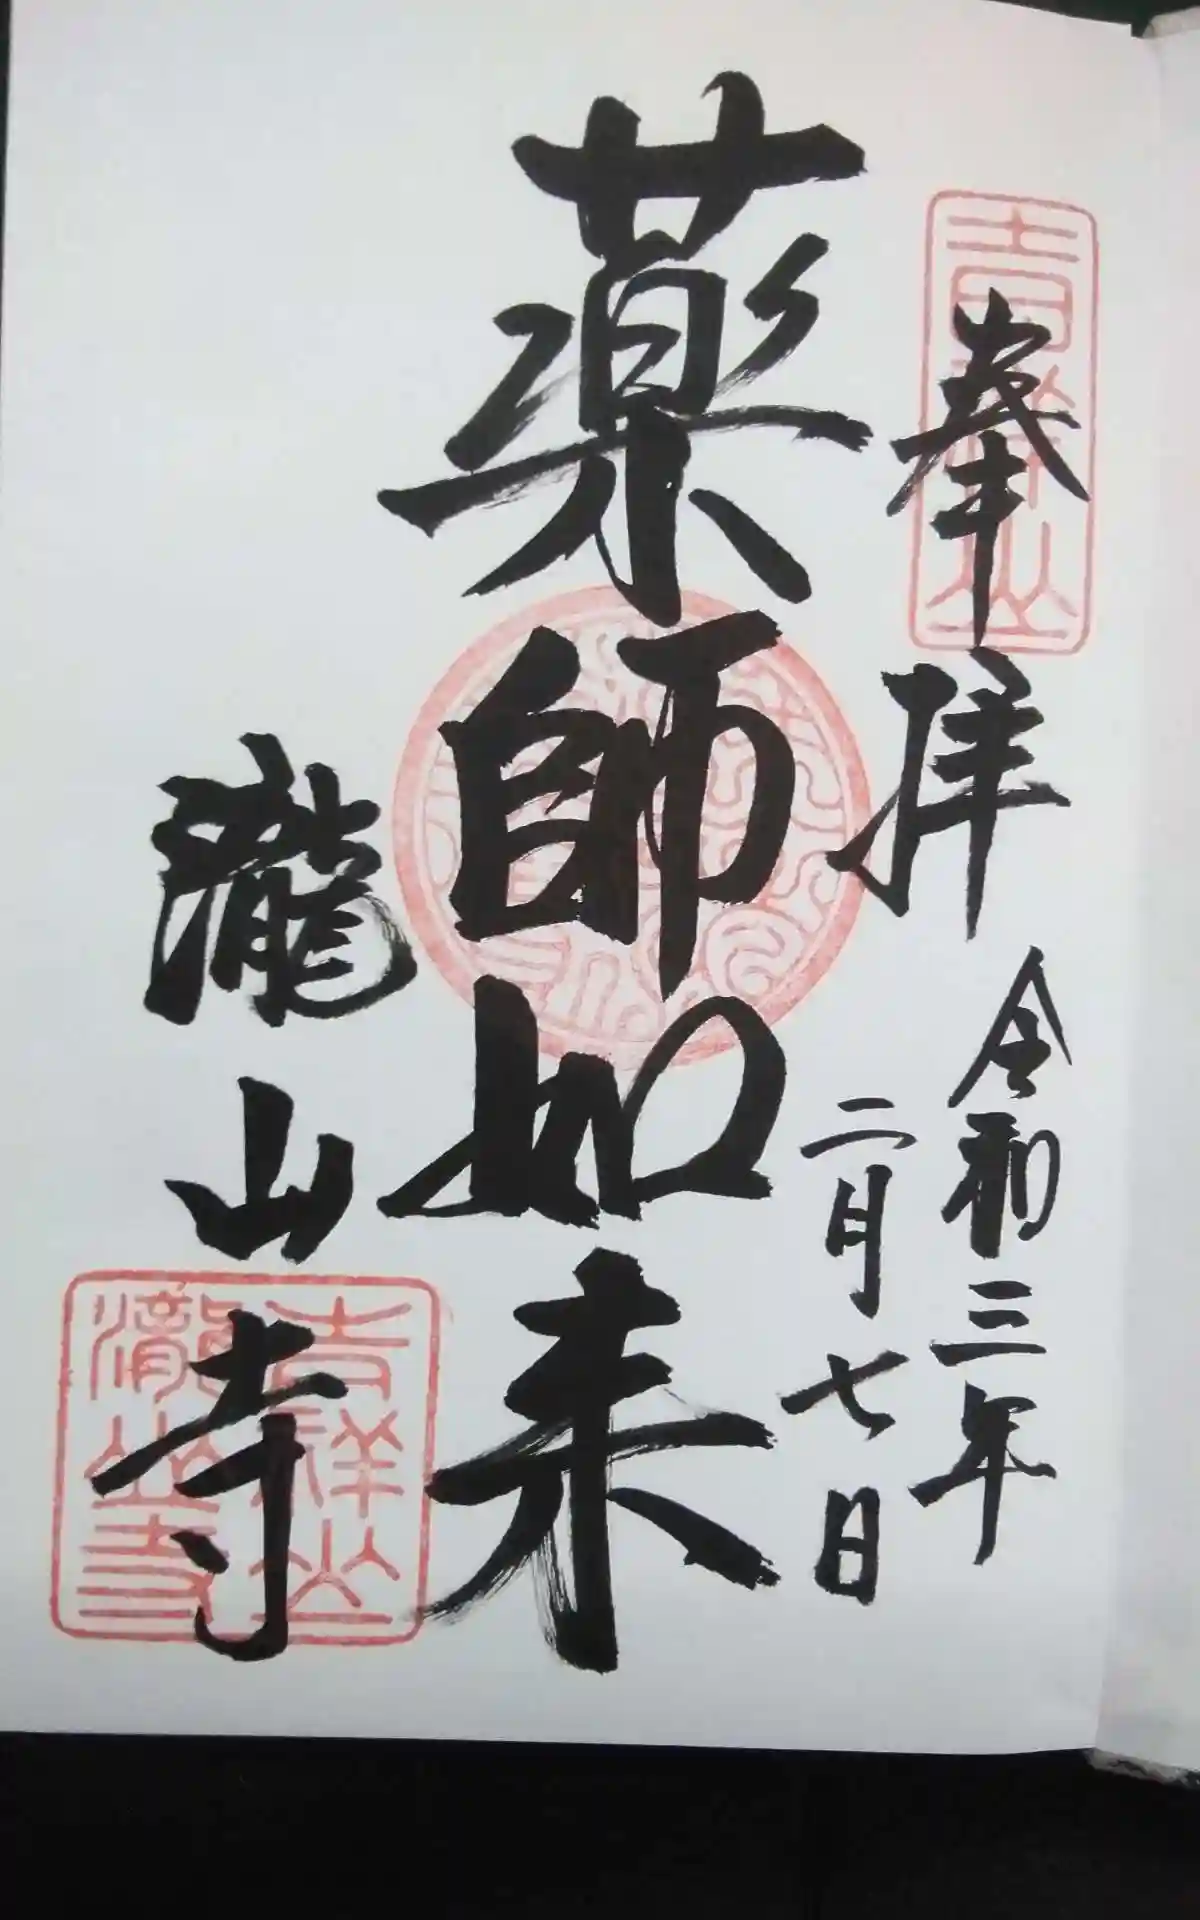 吉祥山
奉拝
令和三年
二月七日
薬師如来
瀧山寺
吉祥山
瀧山寺